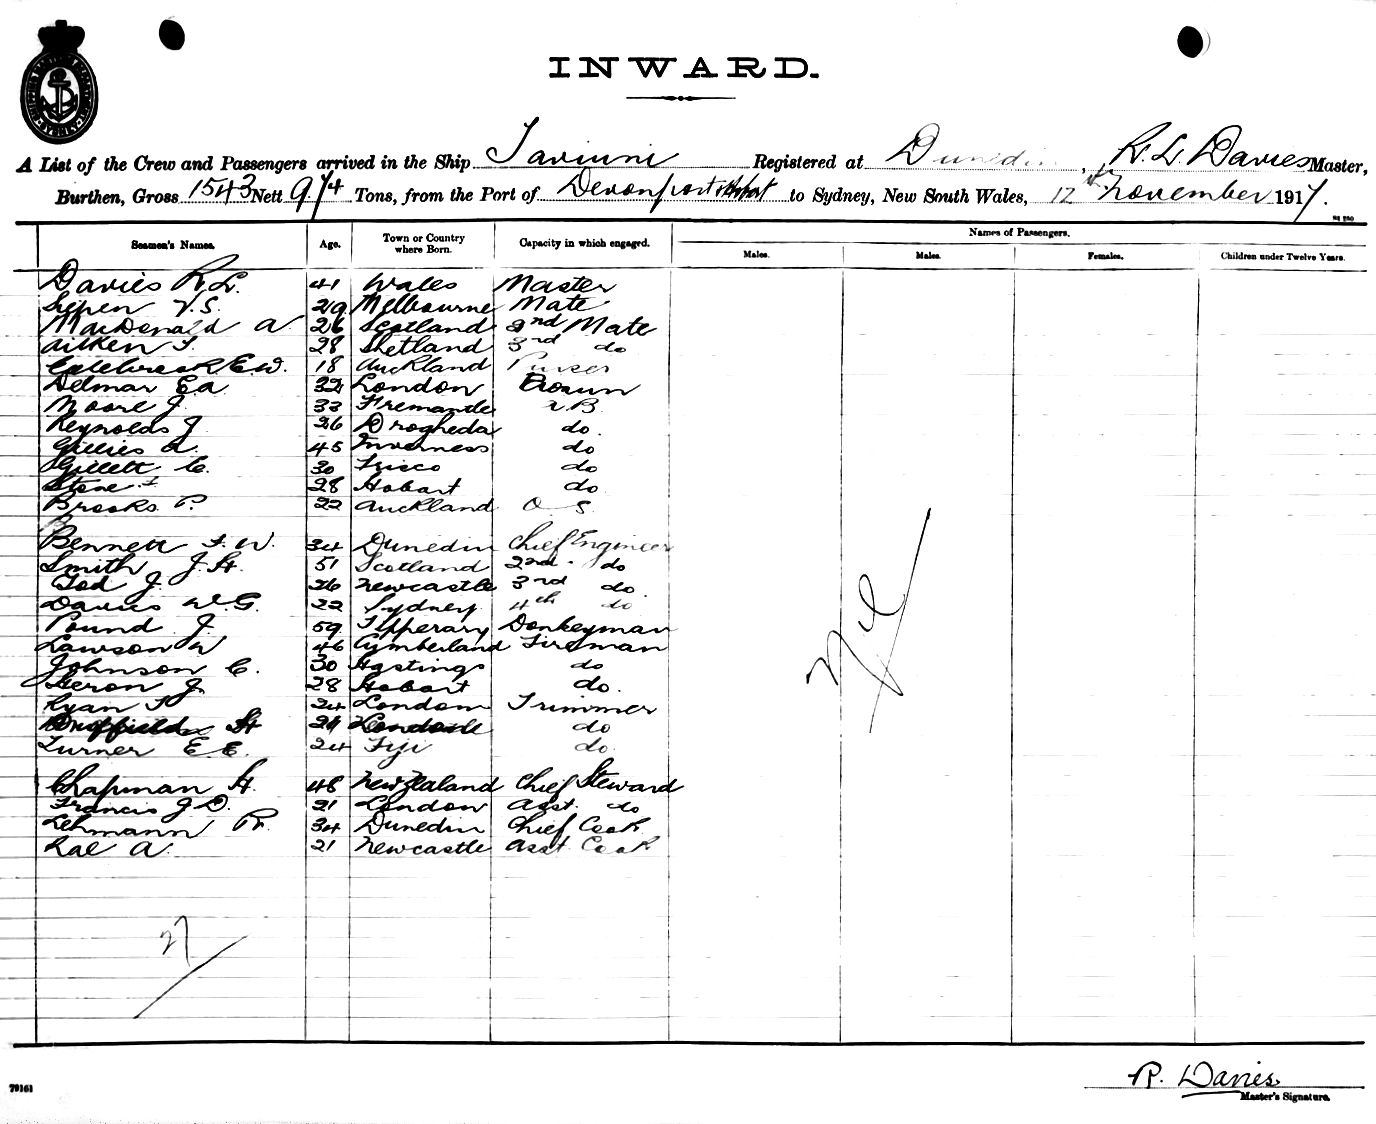 INWARD.
A List of the Crew and Passengers arrived in the Ship Taviuni Registered at Dunedin, R. L. Davies Master,
Burthen, Gross 1543 Nett 974 Tons, from the Port of Devonport to Sydney, New South Wales, 12th November 1917.
Seamen's Names. Age. Town or Country where Born. Capacity in which engaged. Names of Passengers.
Males. Males. Females. Children under Twelve Years.
Davies R. L. 41 Wales Master
V. S. 29 Melbourne Mate
MacDonald A 26 Scotland 2nd Mate
Aitken T. 28 Shetland 3rd do
E. W. 18 Auckland Purser
Delmar E A 32 London Bosun
Moore J. 33 Fremantle A B
Reynolds J. 26 Drogheda do.
Gillies A. 45 Inverness do
Gillett C. 30 Frisco do
Stone 28 Hobart do
Brooks P. 22 Auckland O S
Bennett F. W. 34 Dunedin Chief Engineer
Smith J. H. 51 Scotland 2nd do
Tod J. 26 Newcastle 3rd do.
Davies W. G. 22 Sydney 4th do
Pound J. 59 Tipperary Donkeyman
Lawson W 46 Cumberland Fireman
Johnson C. 30 Hastings do
Heron J. 28 Hobart do.
Ryan T 24 London Trimmer
H 21 do
Turner E E. 24 Fiji do.
Chapman H. 48 New Zealand Chief Steward
Francis J D. 21 London Asst. do
Lehmann R. 34 Dunedin Chief Cook
Rae A. 21 Newcastle Asst Cook
Nil
27
R. Davies
Master's Signature.
79161